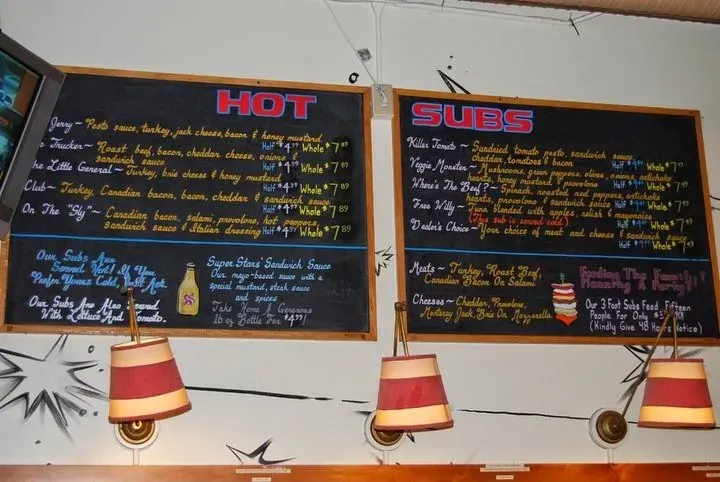 HOT
Jerry~ Pesto sauce, turkey, jack cheese, bacon & honey mustard
Half $4.99 Whole $7.89
Trucker~ Roast beef, bacon, cheddar cheese, onions &
sandwich sauce Half $4.99 Whole $7.89
The Little General~ Turkey, brie cheese & honey mustard
Half $4.99 Whole $7.89
Club~ Turkey, Canadian bacon, bacon, cheddar & sandwich sauce
Half $4.99 Whole $7.89
On The "Sly"~ Canadian bacon, salami, provolone, hot peppers,
sandwich sauce & Italian dressing Half $4.99 Whole $7.89
Our Subs Are
Served Hot! If You
Prefer Yours Cold, Just Ask.
Our Subs Are Also Served
With Lettuce And Tomato.
Super Stars' Sandwich Sauce
Our mayo-based sauce with a
special mustard, steak sauce
and spices
Take Home A Generous
16 oz Bottle For $4.99!
SUBS
Killer Tomato~ Sundried tomato pesto, sandwich sauce
cheddar, tomatoes & bacon Half Whole $7.89
Veggie Monster~ Mushrooms, green peppers, olives, onions, artichoke
hearts, honey mustard & provolone Half Whole $7.89
Where's The Beef?~ Spinach, roasted red peppers, artichoke
hearts, provolone & sandwich sauce Half Whole $7.89
Free Willy~ Tuna blended with apples, relish & mayonaise
(This sub is served cold) Half Whole $7.89
Dealer's Choice~ Your choice of meat and cheese & sandwich sauce
Half Whole $7.89
Meats~ Turkey, Roast Beef,
Canadian Bacon Or Salami
Cheeses~ Cheddar, Provolone,
Monterey Jack, Brie Or Mozzarella
Feeding The Family?
Planning A Party?
Our 3 Foot Subs Feed Fifteen
People For Only
(Kindly Give 48 Hours Notice)